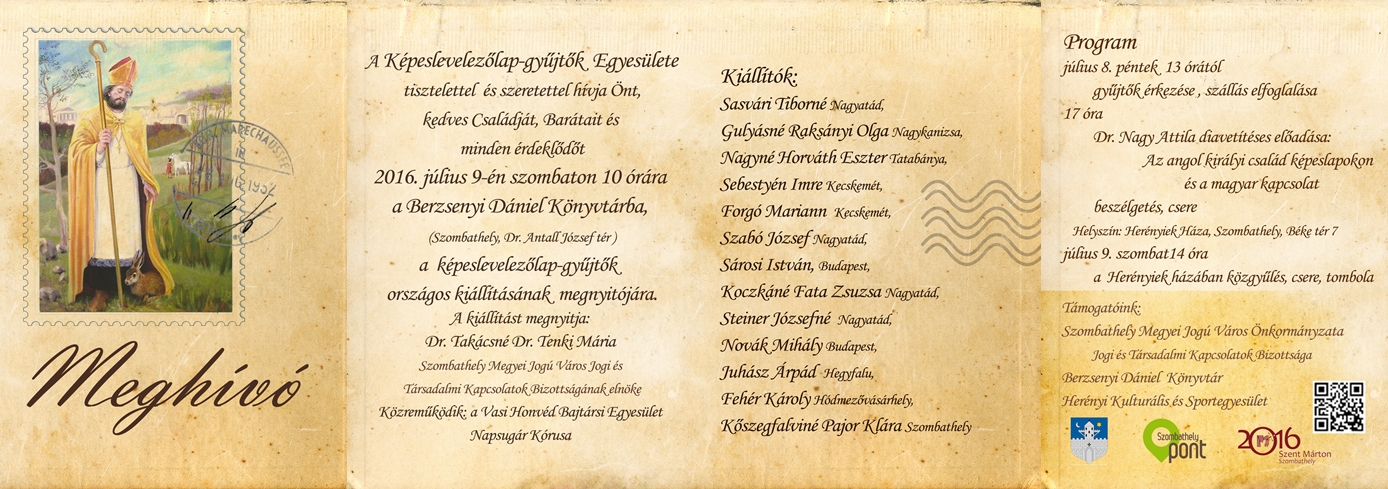 MARECHAUSSEE
Meghívó
A Képeslevelezőlap-gyűjtők Egyesülete
tisztelettel és szeretettel hívja Önt,
kedves Családját, Barátait és
minden érdeklődőt
2016. július 9-én szombaton 10 órára
a Berzsenyi Dániel Könyvtárba,
(Szombathely, Dr. Antall József tér )
a képeslevelezőlap-gyűjtők
országos kiállításának megnyitójára.
A kiállítást megnyitja:
Dr. Takácsné Dr. Tenki Mária
Szombathely Megyei Jogú Város Jogi és
Társadalmi Kapcsolatok Bizottságának elnöke
Közreműködik: a Vasi Honvéd Bajtársi Egyesület
Napsugár Kórusa
Kiállítók:
Sasvári Tiborné Nagyatád,
Gulyásné Raksányi Olga Nagykanizsa,
Nagyné Horváth Eszter Tatabánya,
Sebestyén Imre Kecskemét,
Forgó Mariann Kecskemét,
Szabó József Nagyatád,
Sárosi István, Budapest,
Koczkáné Fata Zsuzsa Nagyatád,
Steiner Józsefné Nagyatád,
Novák Mihály Budapest,
Juhász Árpád Hegyfalu,
Fehér Károly Hódmezővásárhely,
Kőszegfalviné Pajor Klára Szombathely
Program
július 8. péntek 13 órától
gyűjtők érkezése , szállás elfoglalása
17 óra
Dr. Nagy Attila diavetítéses előadása:
Az angol királyi család képeslapokon
és a magyar kapcsolat
beszélgetés, csere
Helyszín: Herényiek Háza, Szombathely, Béke tér 7
július 9. szombat14 óra
a Herényiek házában közgyűlés, csere, tombola
Támogatóink:
Szombathely Megyei Jogú Város Önkormányzata
Jogi és Társadalmi Kapcsolatok Bizottsága
Berzsenyi Dániel Könyvtár
Herényi Kulturális és Sportegyesület
Szombathely
pont
2016
Szent Márton
Szombathely